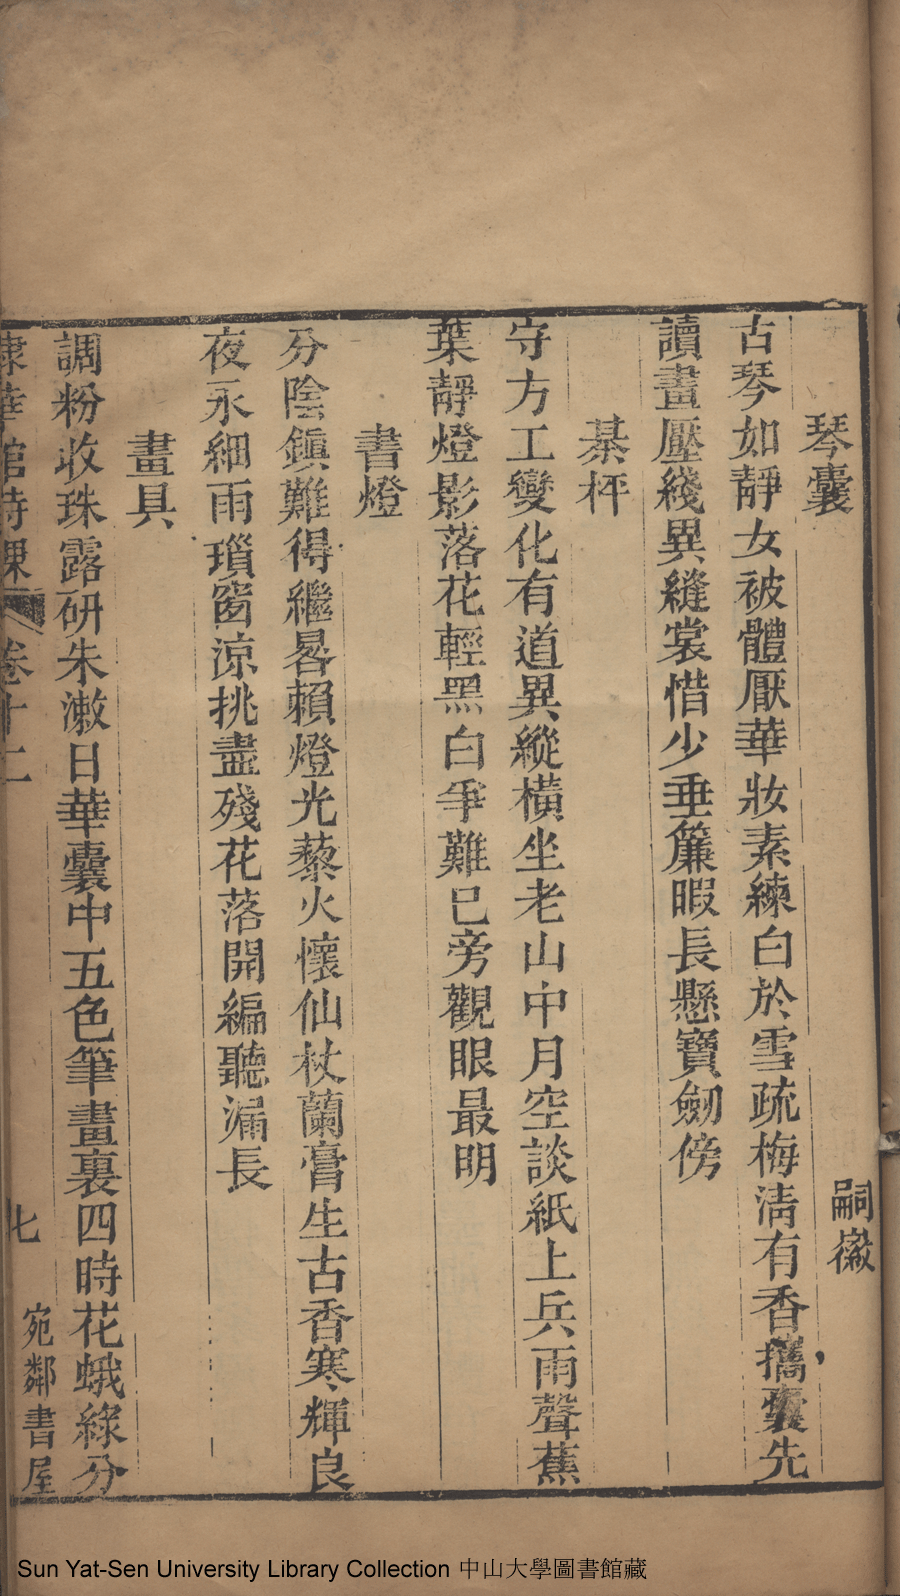 琴囊
嗣徽
古琴如靜女被體厭華妝素練白於雪疏梅清有香攜囊先
讀畫壓綫異縫裳惜少垂簾暇長懸寶劒傍
棊枰
守方工變化有道異縱橫坐老山中月空談紙上兵雨聲蕉
葉靜燈影落花輕黑白爭難已旁觀眼最明
書燈
分陰鎮難得繼晷賴燈光藜火懷仙杖蘭膏生古香寒輝良
夜永細雨瑣窗涼挑盡殘花落開編聽漏長
畫具
調粉收珠露研朱漱日華囊中五色筆畫裏四時花蛾綠分
棣華館詩課
卷十二
七
宛鄰書屋
Sun Yat-Sen University Library Collection 中山大學圖書館藏